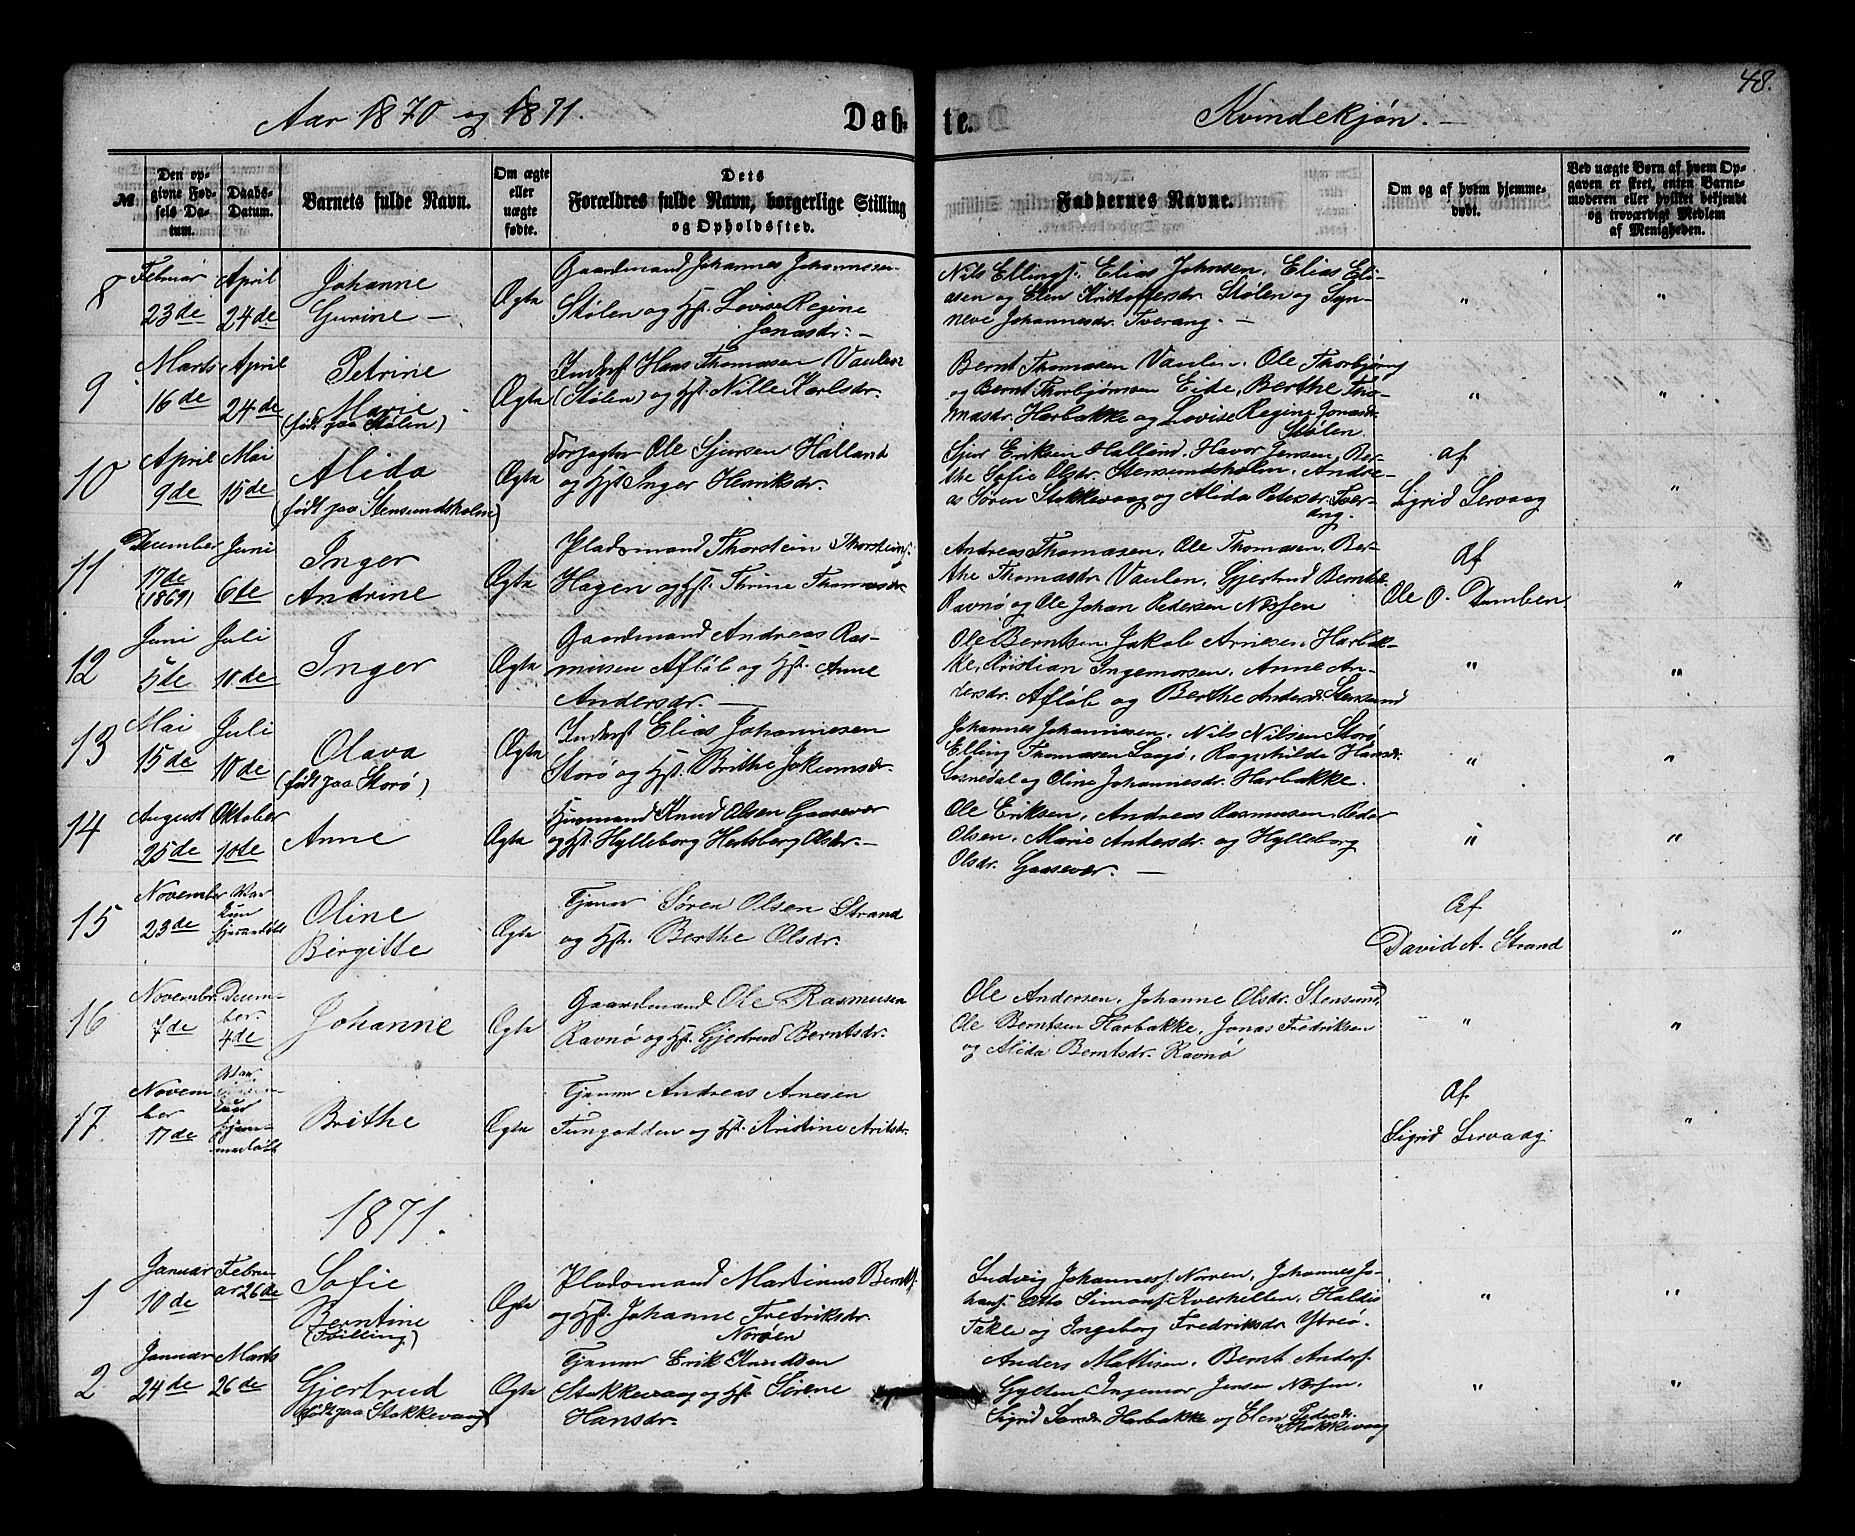 48.
Aar 1870 og 1871.
Døb- te.
Kvindekjøn. —
№
Den opgivne Fødsels Datum.
Daabs-Datum.
Barnets fulde Navn.
Om ægte eller uægte fødte.
Dets Forældres fulde Navn, borgerlige Stilling og Opholdssted.
Faddernes Navne.
Om og af hvem hjemmedøbt.
Ved uægte Børn af hvem Opgaven er skeet, enten Barnemoderen eller hvilket bekjendt og troværdigt Medlem af Menigheden.
8
Februar 23de
April 24de
Johanne
Gurine —
Ægte
Gaardmand Johannes Johannesen
Stølen og Hst. Lovise Regine
Jonasdr. —
Nils Ellings. Elias Johnsen. Elias Eli-
asen og Elen Kristoffersdr. Stølen og Syn-
neve Johannesdr. Tverang. —
"
"
9
Marts 16de
April 24de
Petrine
Marie
(født paa Stølen)
Ægte
Inderst Hans Thomasen Vaulen
(Stølen) og Hst. Nille Karlsdr.
Bernt Thomasen Vaulen. Ole Thorbjørns
og Bernt Thorbjørnsen Eide, Berthe Tho-
masdr. Harbakke og Lovise Regine Jonasdr.
Stølen
"
"
10
April 9de
Mai 15de
Alida
(født paa Stensundsholm)
Ægte
Forpagter Ole Sjursen Halland
og Hst. Inger Henriksdr.
Sjur Eriksen Halland. Havor Jensen, Ber-
the Sofie Olsdr. Stensundholm. Andre-
as Søren Stokkevaag og Alida Petersdr. Tver-
ang.
af
Sigrid Lervaag
"
11
December 17de (1869)
Juni 6de
Inger
Andrine
Ægte
Pladsmand Thorstein Thorsteins.
Hagen og Hst. Thrine Thomasdr.
Andreas Thomasen. Ole Thomasen. Ber-
the Thomasdr. Vaulen. Gjertrud Berntsdr.
Ravnø og Ole Johan Pedersen
Af
Ole O. Dumben
"
12
Juni 5de
Juli 10de
Inger
Ægte
Gaardmand Andreas Ras-
musen Afløb og Hst. Anne
Andersdr. —
Ole Berntsen, Jakob Arnesen. Harbak-
ke, Kristian Ingemorsen. Anne An-
dersdr. Afløb og Berthe Andersdr. Stensund
"
"
13
Mai 15de
Juli 10de
Olava
(født paa Storø)
Ægte
Inderst Elias Johannesen
Storø og Hst. Brithe Jokumsdr.
Johannes Johannesen. Nils Nilsen Storø
Elling Thomasen Ragnhilda Hansdr.
og Oline Johannesdr. Harbakke.
"
"
14
August 25de
Oktober 10de
Anne
Ægte
Huusmand Knud Olsen Gaasevær
og Hst. Hylleborg Hertsberg Olsdr. —
Ole Eriksen. Andreas Rasmusen. Peder
Olsen. Marie Andersdr. og Hylleborg
Olsdr. Gaasevær. —
"
"
15
November 23de
Var kun hjemmedøbt
Oline
Birgitte
Ægte
Tjener Søren Olsen Strand
og Hst. Berthe Olsdr.
Af
David A. Strand
"
16
Novembr. 7de
December 4de
Johanne
Ægte
Gaardmand Ole Rasmusen
Ravnø og Hst. Gjertrud Berntsdr.
Ole Andersen. Johanne Olsdr. Stensund,
Ole Berntsen Harbakke. Jonas Fredriksen
og Alida Berntsdr. Ravnø
"
"
17.
November 17de
Var kun hjemmedøbt
Brithe
Ægte
Tjener Andreas Arnesen
Tungodden og Hst. Kristine Aritsdr.
Af
Sigrid Lervaag.
"
1871.
1
Januar 10de
Februar 26de
Sofie
Berntine
(Tvilling)
Ægte
Pladsmand Martinus Bernts.
og Hst. Johanne Fredriksdr.
Norøen
Ludvig Johannes. Norøen, Johannes Jo-
hans. Otto Simons. Kverhellen. Haldis
Takle og Ingeborg Fredriksdr. Ytreø.
"
"
2
Januar 24de
Marts 26de
Gjertrud
(født paa Stokkevaag)
Ægte
Tjener Erik Knudsen
Stokkevaag og Hst. Sørene
Hansdr.
Anders Mattisen. Bernt Anders.
Gylten, Ingemor Jensen
Sigrid Harbakke og Elen Pedersdr.
Stokkevaag
"
"